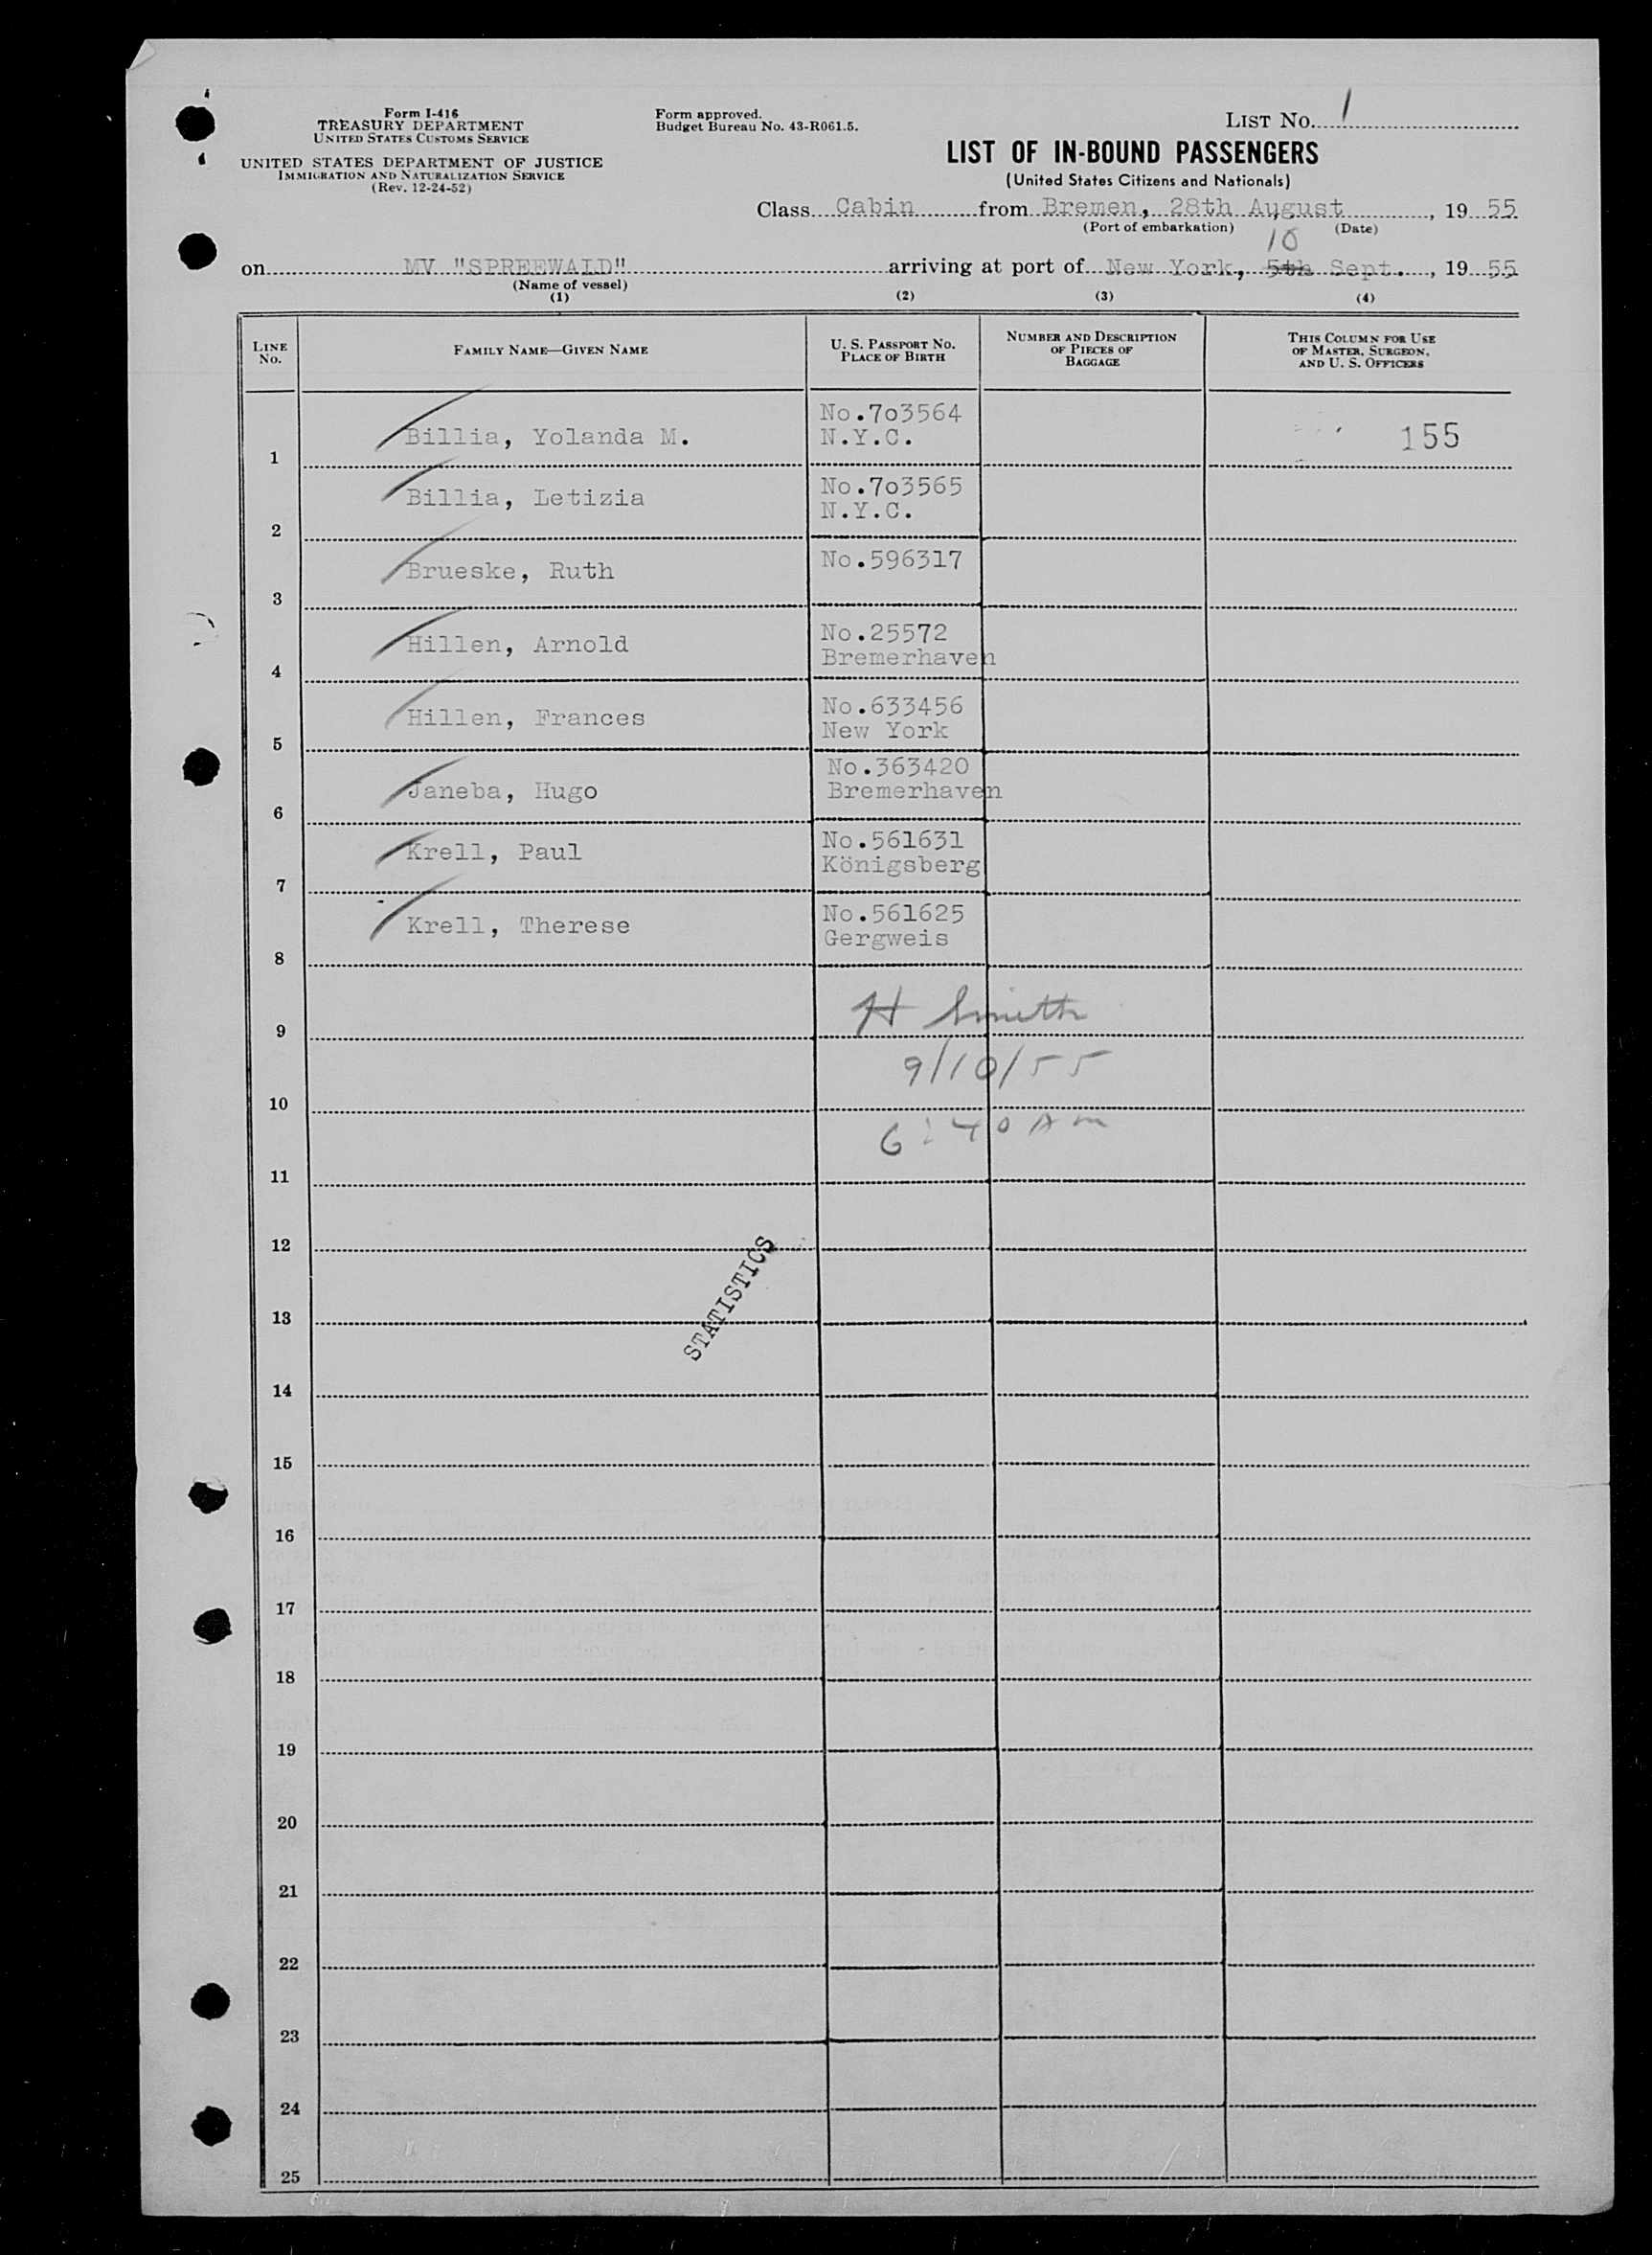 Form I-416
TREASURY DEPARTMENT
UNITED STATES CUSTOMS SERVICE
UNITED STATES DEPARTMENT OF JUSTICE
IMMIGRATION AND NATURALIZATION SERVICE
(Rev. 12-24-52)
Form approved.
Budget Bureau No. 43-R061.5.
LIST NO. 1
LIST OF IN-BOUND PASSENGERS
(United States Citizens and Nationals)
Class Cabin from Bremen, 28th August, 19 55
(Port of embarkation) (Date)
10
on MV "SPREEWALD" arriving at port of New York, 5th Sept., 19 55
(Name of vessel)
(1) (2) (3) (4)
LINE No. FAMILY NAME—GIVEN NAME U. S. PASSPORT NO. PLACE OF BIRTH NUMBER AND DESCRIPTION OF PIECES OF BAGGAGE THIS COLUMN FOR USE OF MASTER, SURGEON, AND U. S. OFFICERS
No.703564
1 Billia, Yolanda M. N.Y.C. 155
No.703565
2 Billia, Letizia N.Y.C.
3 Brueske, Ruth No.596317
No.25572
4 Hillen, Arnold Bremerhaven
No.633456
5 Hillen, Frances New York
No.363420
6 Janeba, Hugo Bremerhaven
No.561631
7 Krell, Paul Königsberg
No.561625
8 Krell, Therese Gergweis
9 H Smith
10 9/10/55
11 6:40 AM
12
STATISTICS
13
14
15
16
17
18
19
20
21
22
23
24
25